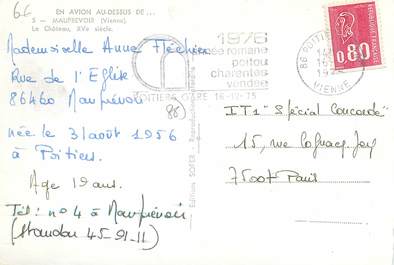 66
EN AVION AU-DESSUS DE...
5 - MAUPREVOIR (Vienne).
Le Château, XVe siècle.
Mademoiselle Anne Fléchier
Rue de l'Eglise
86460 Mauprévoir
(86)
née le 31 août 1956
à Poitiers.
Age 19 ans.
Tél: n° 4 à Mauprévoir
(Standard 45-91-11)
1976
romane
poitou
charentes
vendée
POITIERS GARE 16-12-75
86 POITIERS
VIENNE
0,80
Editions SOFER
IT1 "Spécial Concorde"
15, rue Cognacq-Jay
75007 Paris